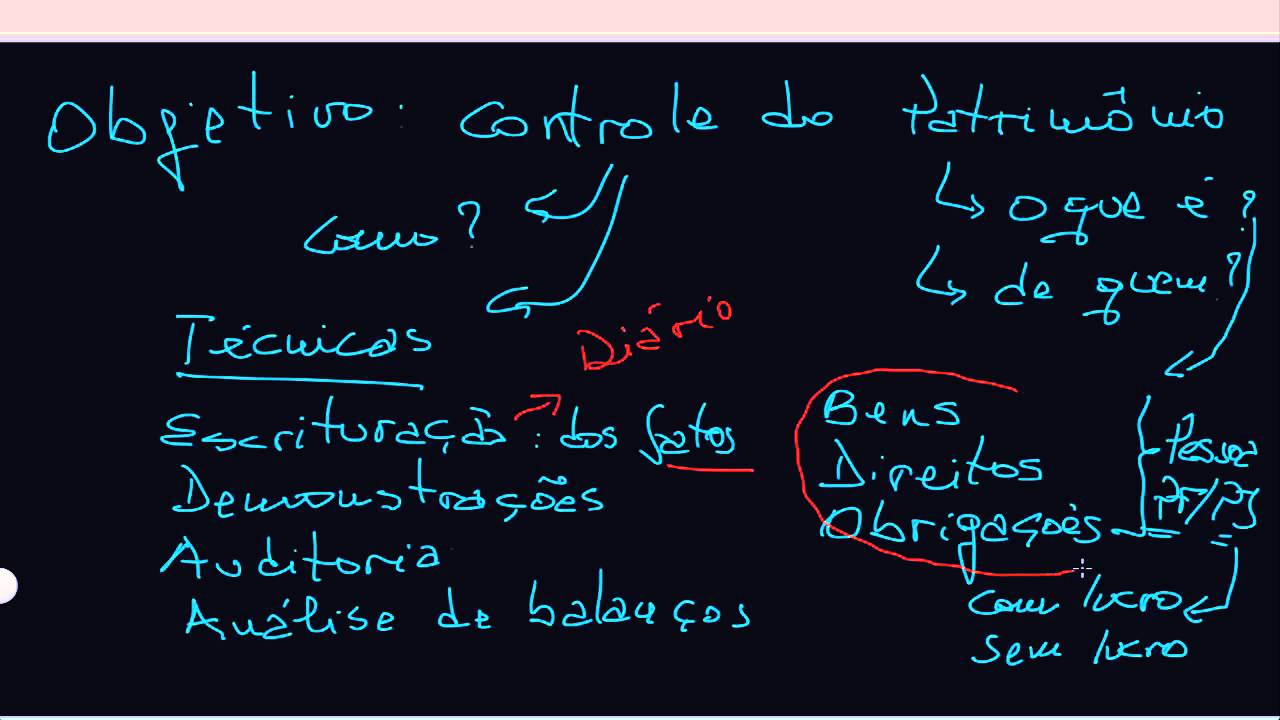 Objetivo: Controle do Patrimônio
Como?
O que é?
de quem?
Técnicas
Diário
Escrituração: dos fatos
Demonstrações
Auditoria
Análise de balanços
Bens
Direitos
Obrigações
Pessoa
PF/PJ
com lucro
sem lucro